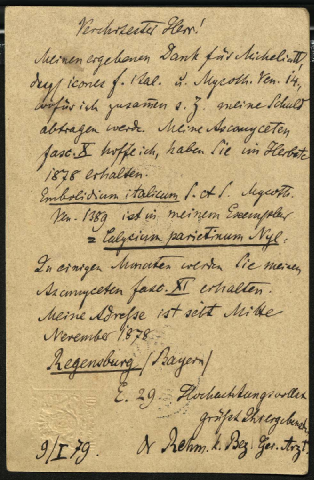 Verehrtester Herr!
Meinen ergebenen Dank für Michelia II,
dess. icones f. Ital. u. Mycoth. Ven. 14,
wofür ich zusammen s. Z. meine Schuld
abtragen werde. Meine Ascomyceten
fasc. X hoffe ich, haben Sie im Herbste
1878 erhalten.
Embolidium italicum S. et S. Mycoth.
Ven. 1389 ist in meinem Exemplar
= Calycium parietinum Nyl.
In einigen Monaten werden Sie meinen
Ascomyceten fasc. XI erhalten.
Meine Adresse ist seit Mitte
November 1878
Regensburg (Bayern)
E. 29 Hochachtungsvollst
grüßt Ihr ergebenster
9/I 79. Dr Rehm. k. Bez. Ger. Arzt